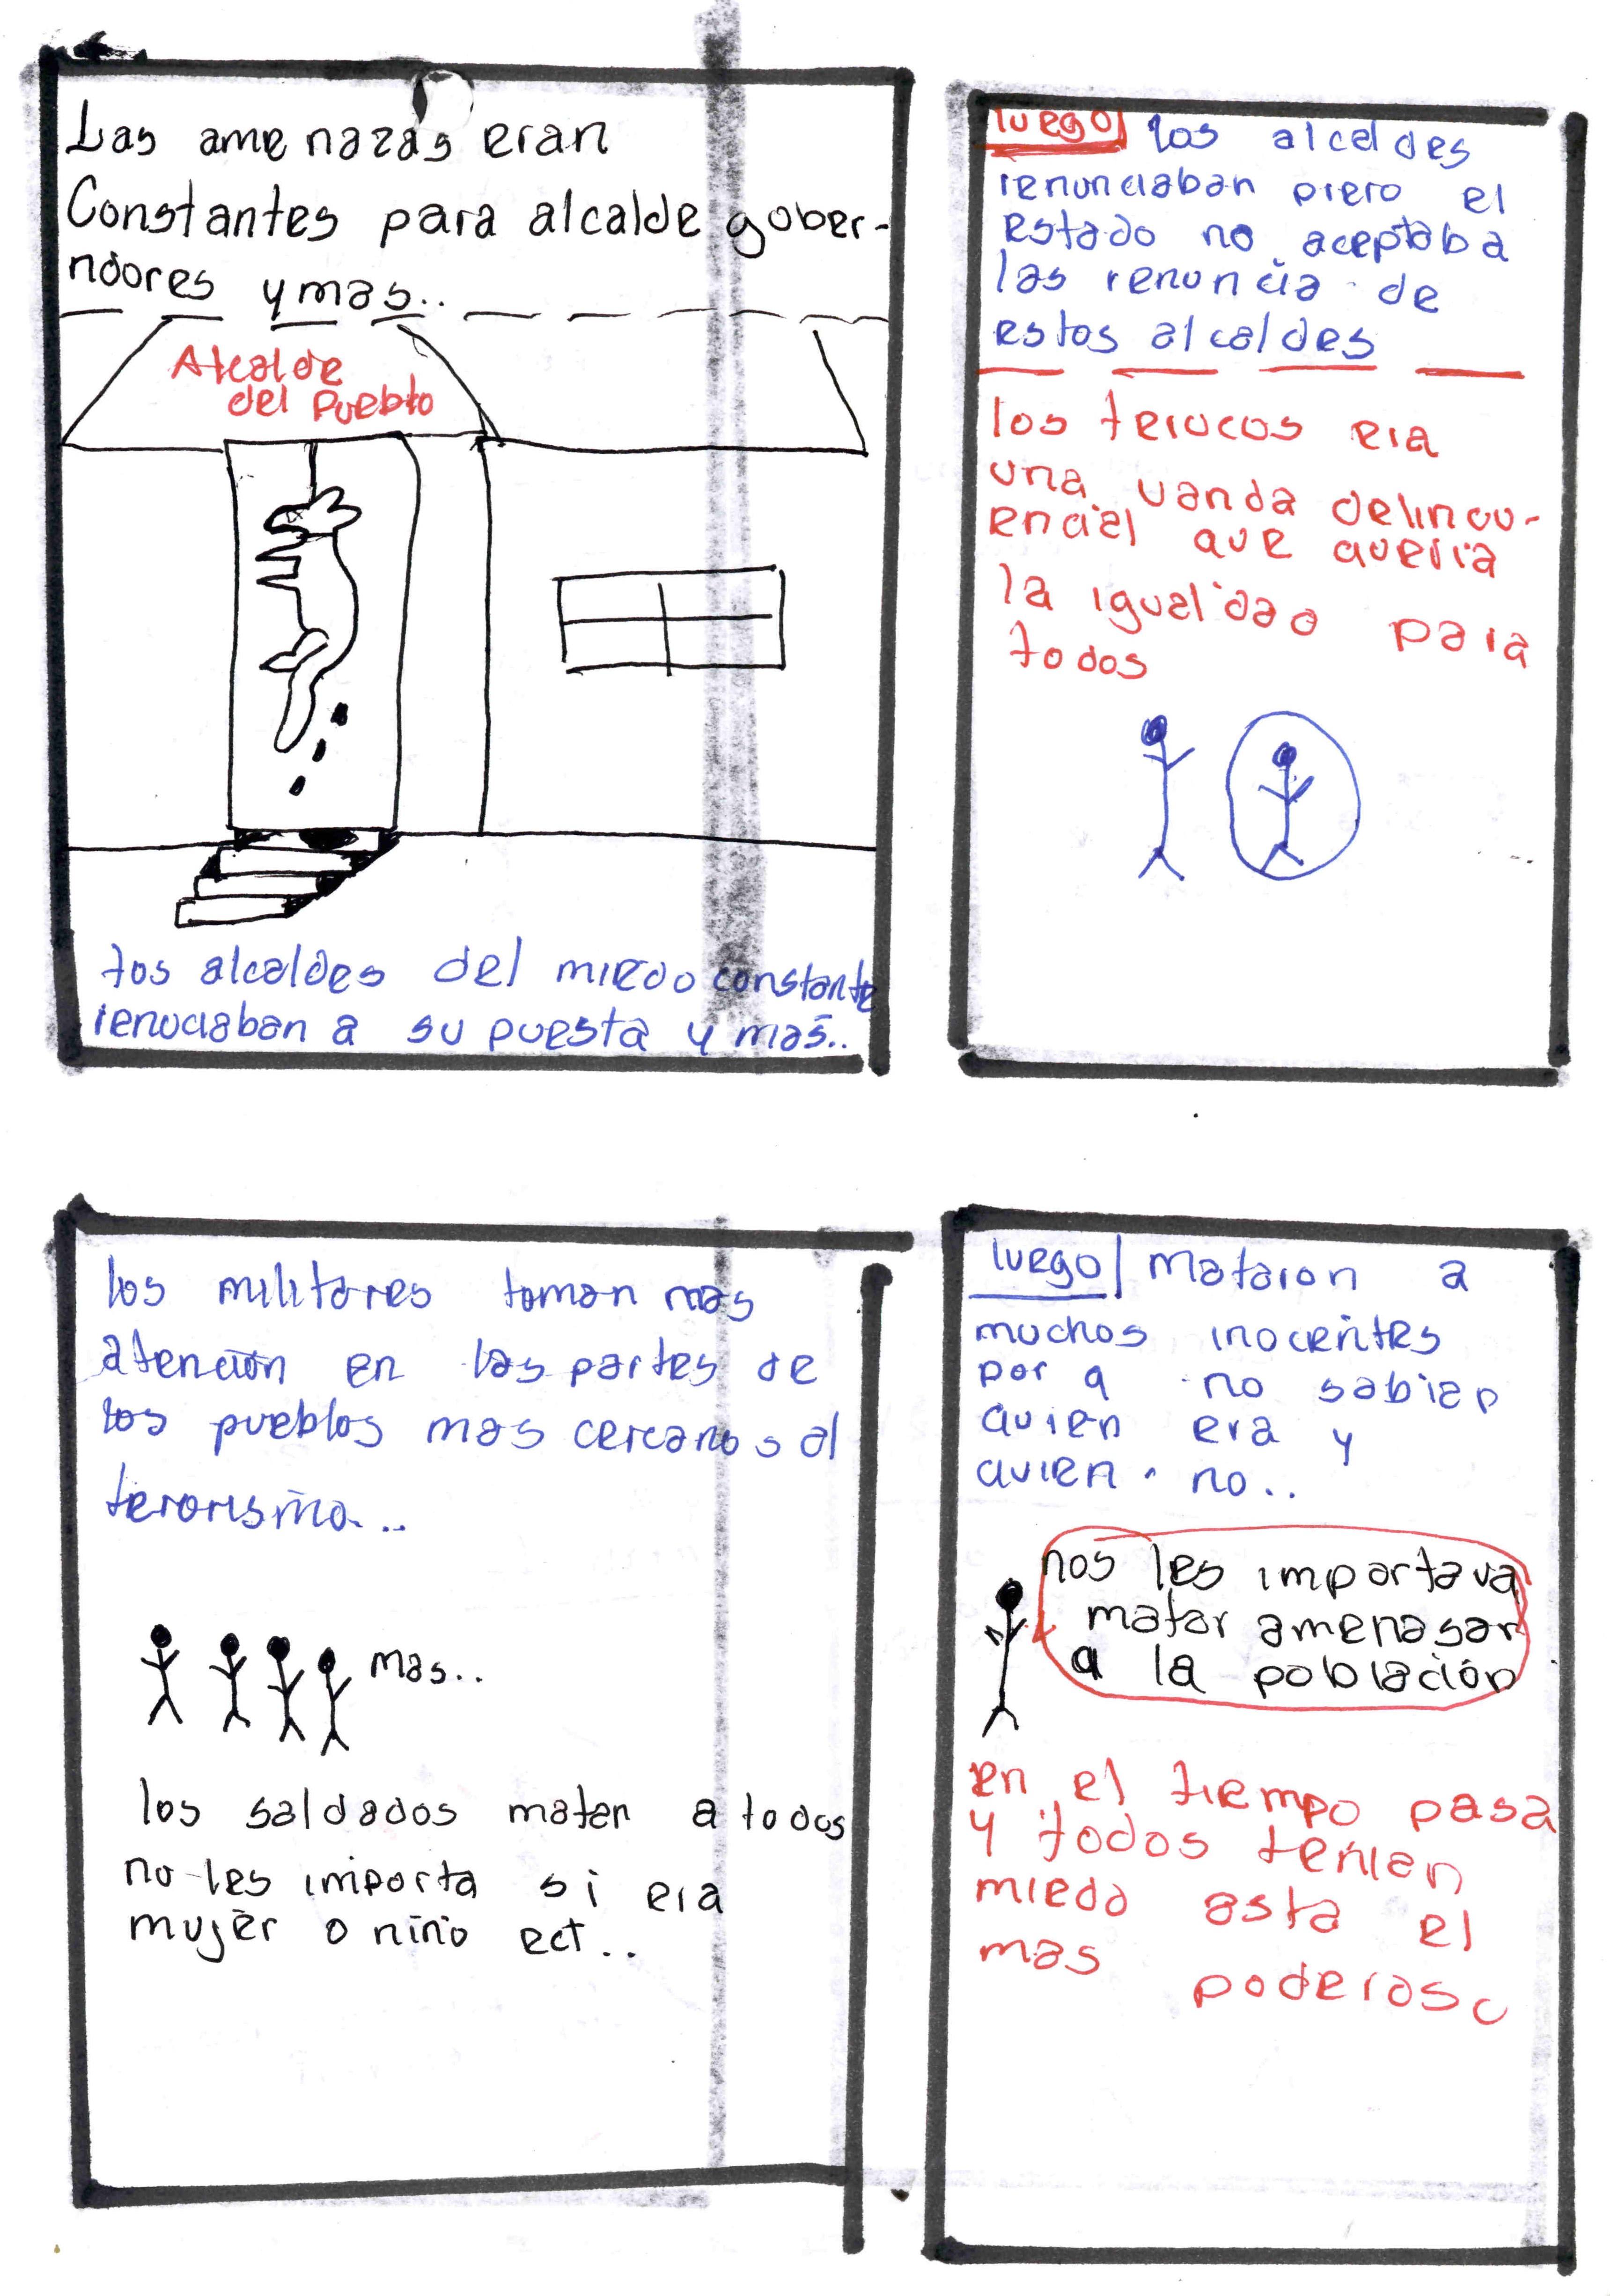 Las amenazas eran
Constantes para alcalde gober-
ndores y mas..
Alcalde
del Pueblo
los alcaldes del miedo constante
renuciaban a su puesta y mas..
luego los alcaldes
renunciaban piero el
estado no aceptaba
las renuncia de
estos alcaldes
los terucos era
una vanda delincu-
encial que queria
la igualidad para
todos
los militares toman mas
atención en las partes de
los pueblos mas cercanos al
terorismo...
mas..
los saldados maten a todos
no les importa si era
mujer o niño ect..
luego mataron a
muchos inocentes
por q no sabian
quien era y
quien no..
nos les importava
matar amenasar
a la población
en el tiempo pasa
y todos tenian
miedo asta el
mas poderoso